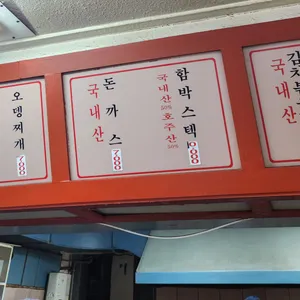 오뎅찌개
국내산
돈까스
국내산
7000
함박스텍
국내산 50% 호주산 50%
김치볶
국내산